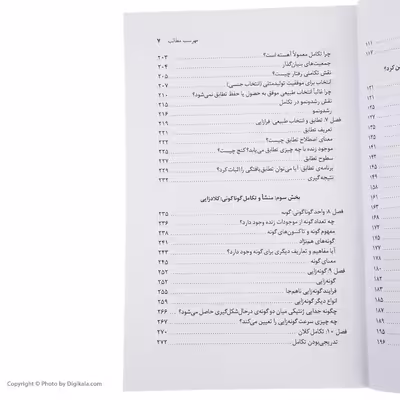 فهرست مطالب ۷
چرا تکامل معمولاً آهسته است؟ ۲۰۳
جمعیت‌های بنیان‌گذار ۲۰۴
نقش تکاملی رفتار چیست؟ ۲۰۵
انتخاب برای موفقیت تولیدمثلی (انتخاب جنسی) ۲۰۷
چرا غالباً انتخاب طبیعی موفق به حصول یا حفظ تطابق نمی‌شود؟ ۲۱۰
نقش رشدونمو در تکامل ۲۱۵
رشدونمو ۲۱۶
فصل ۷. تطابق و انتخاب طبیعی: فرازایی ۲۱۹
تعریف تطابق ۲۲۱
معنای اصطلاح تطابق چیست؟ ۲۲۲
موجود زنده با چه چیزی تطابق می‌یابد؟ کنج چیست؟ ۲۲۵
سطوح تطابق ۲۲۷
برنامه‌ی تطابق: آیا می‌توان تطابق‌یافتگی را اثبات کرد؟ ۲۲۹
نتیجه‌گیری ۲۳۲
بخش سوم: منشأ و تکامل گوناگونی: کلادزایی
فصل ۸. واحد گوناگونی: گونه ۲۳۵
چه تعداد گونه از موجودات زنده وجود دارد؟ ۲۳۶
مفهوم گونه و تاکسون‌های گونه ۲۳۸
گونه‌های هم‌نژاد ۲۴۱
آیا مفاهیم و تعاریف دیگری برای گونه وجود دارد؟ ۲۴۳
معنای گونه ۲۴۵
فصل ۹. گونه‌زایی ۲۵۲
گونه‌زایی ۲۵۲
فرایند گونه‌زایی ناهم‌جا ۲۵۵
انواع دیگر گونه‌زایی ۲۵۹
چگونه جدایی ژنتیکی میان دو گونه‌ی درحال‌شکل‌گیری حاصل می‌شود؟ ۲۶۶
چه چیزی سرعت گونه‌زایی را تعیین می‌کند؟ ۲۶۷
فصل ۱۰. تکامل کلان ۲۷۰
تدریجی‌بودن تکامل ۲۷۲
Copyright © Photo by Digikala.com